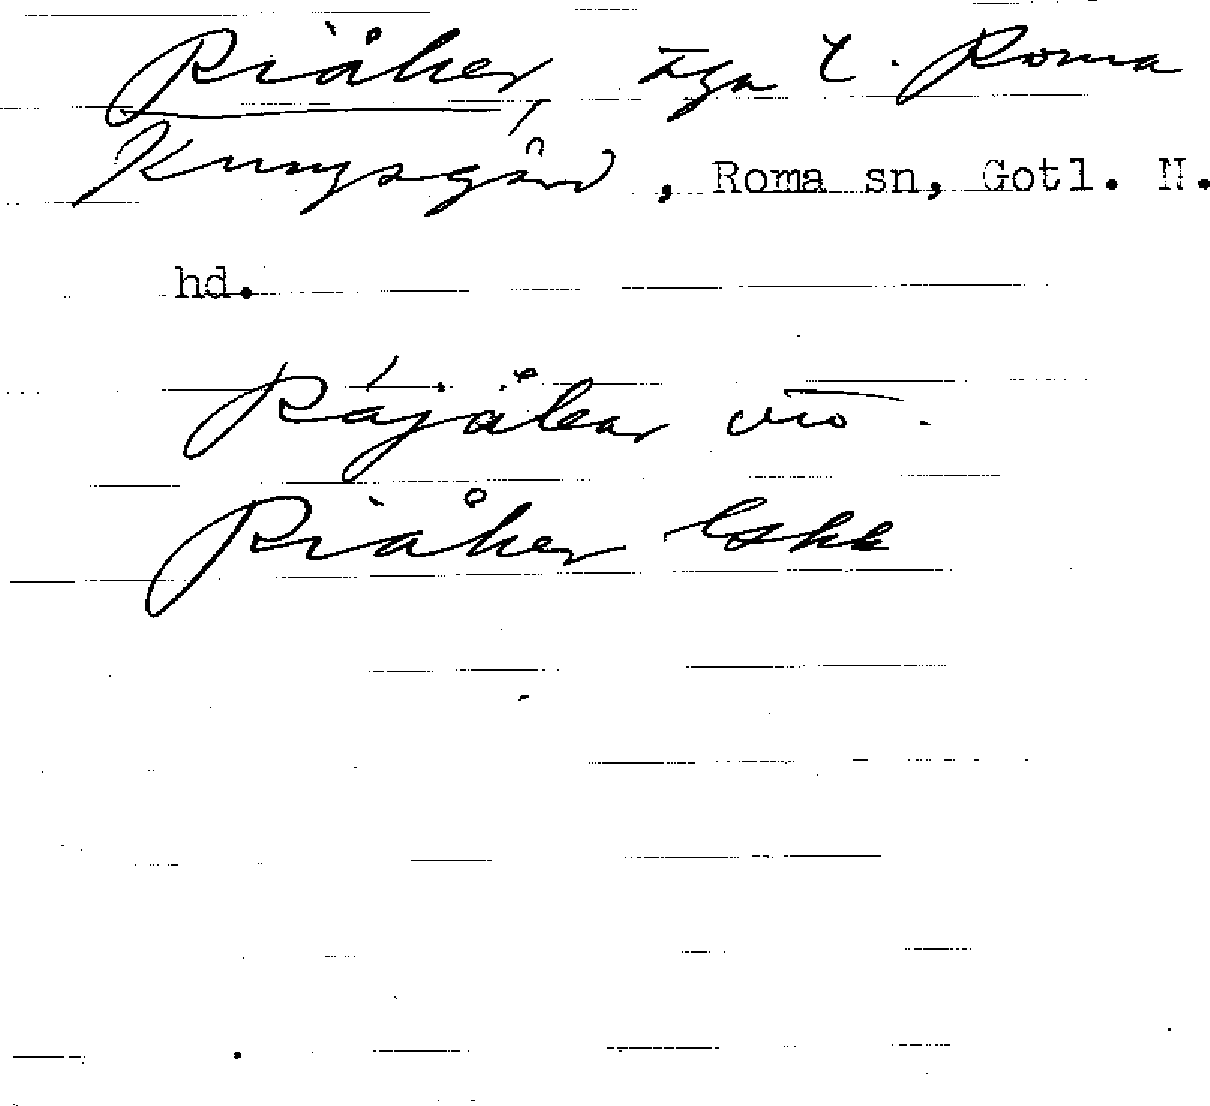 Riåker, äga t. Roma
Kungsgård, Roma sn, Gotl. N.
hd.
Rájåkar
Riåker